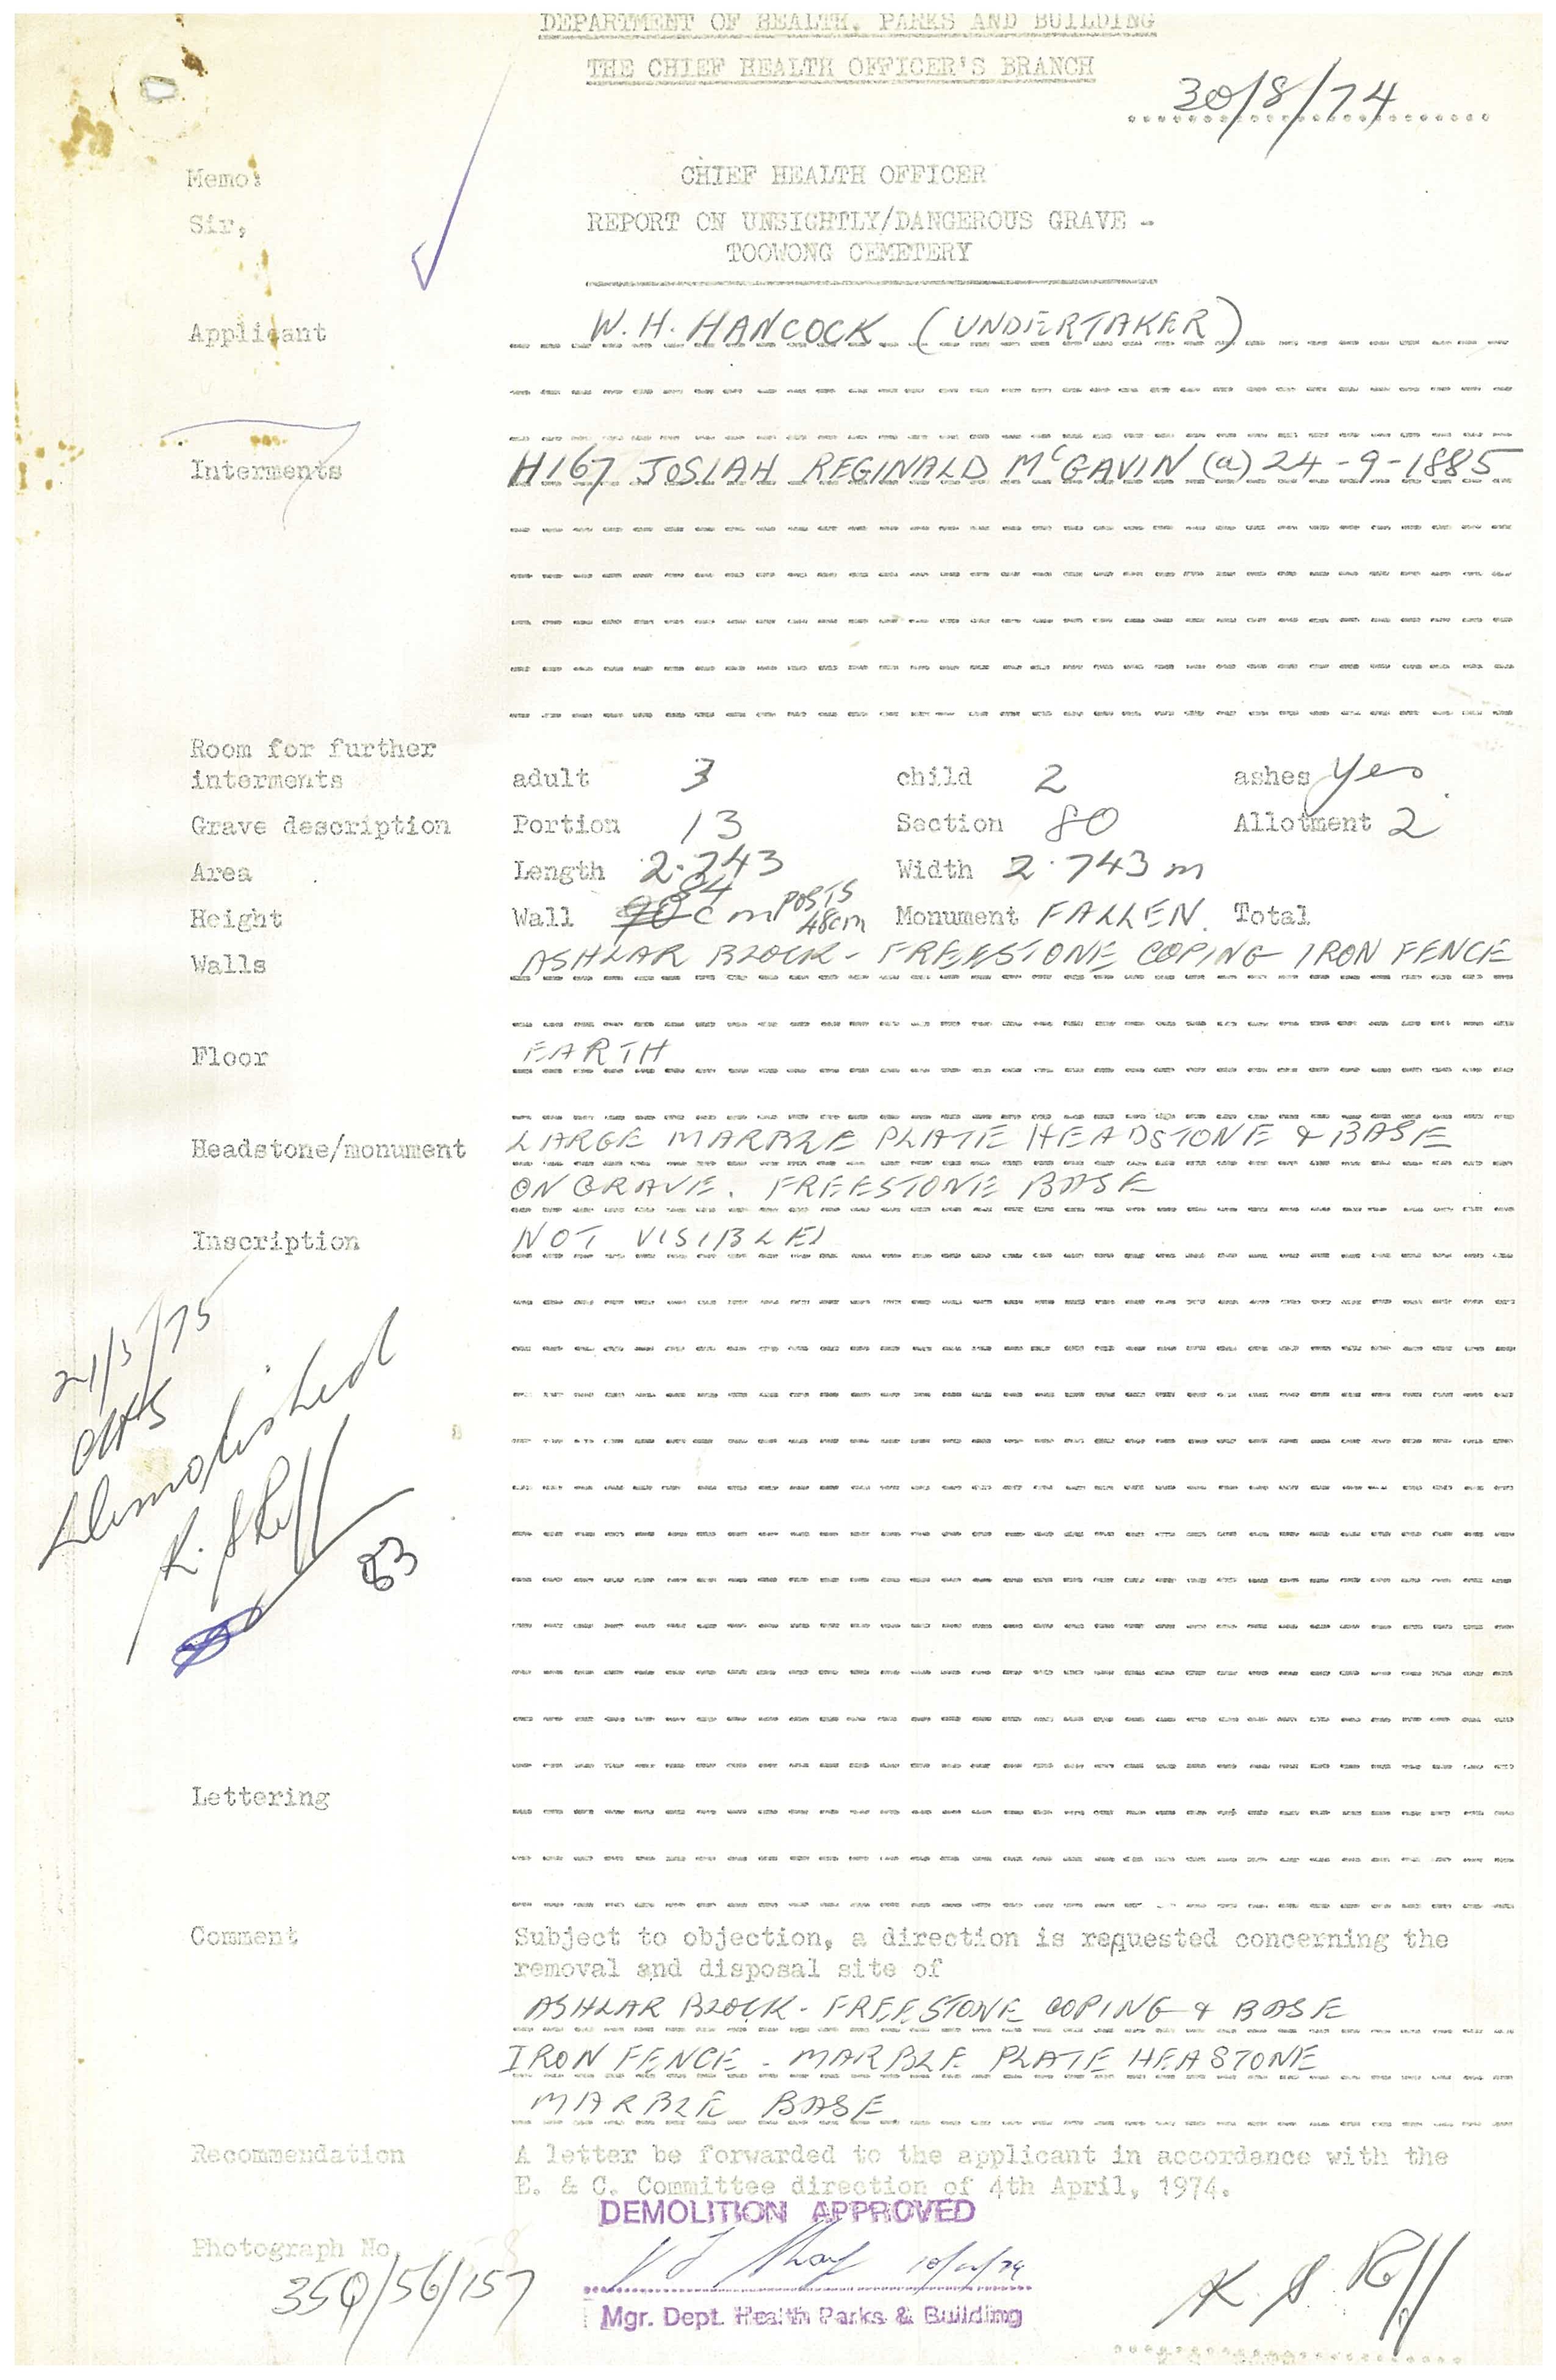 DEPARTMENT OF HEALTH, PARKS AND BUILDING
THE CHIEF HEALTH OFFICER'S BRANCH
30/8/74
Memo: CHIEF HEALTH OFFICER
Sir, REPORT ON UNSIGHTLY/DANGEROUS GRAVE -
TOOWONG CEMETERY
Applicant W. H. HANCOCK (UNDERTAKER)
Interments H167 JOSIAH REGINALD McGAVIN (a) 24-9-1885
Room for further
interments adult 3 child 2 ashes yes
Grave description Portion 13 Section 80 Allotment 2
Area Length 2.743 Width 2.743 m
Height Wall 84 cm POSTS 48cm Monument FALLEN. Total
Walls ASHLAR BLOCK - FREESTONE COPING IRON FENCE
Floor EARTH
Headstone/monument LARGE MARBLE PLATE HEADSTONE & BASE
ON GRAVE. FREESTONE BASE
Inscription NOT VISIBLE
21/3/75
Demolished
K. S. Roff
83
Lettering
Comment Subject to objection, a direction is requested concerning the
removal and disposal site of
ASHLAR BLOCK - FREESTONE COPING & BASE
IRON FENCE - MARBLE PLATE HEASTONE
MARBLE BASE
Recommendation A letter be forwarded to the applicant in accordance with the
E. & C. Committee direction of 4th April, 1974.
DEMOLITION APPROVED
Photograph No.
35Q/56/157
Mgr. Dept. Health Parks & Building
K. S. Roff